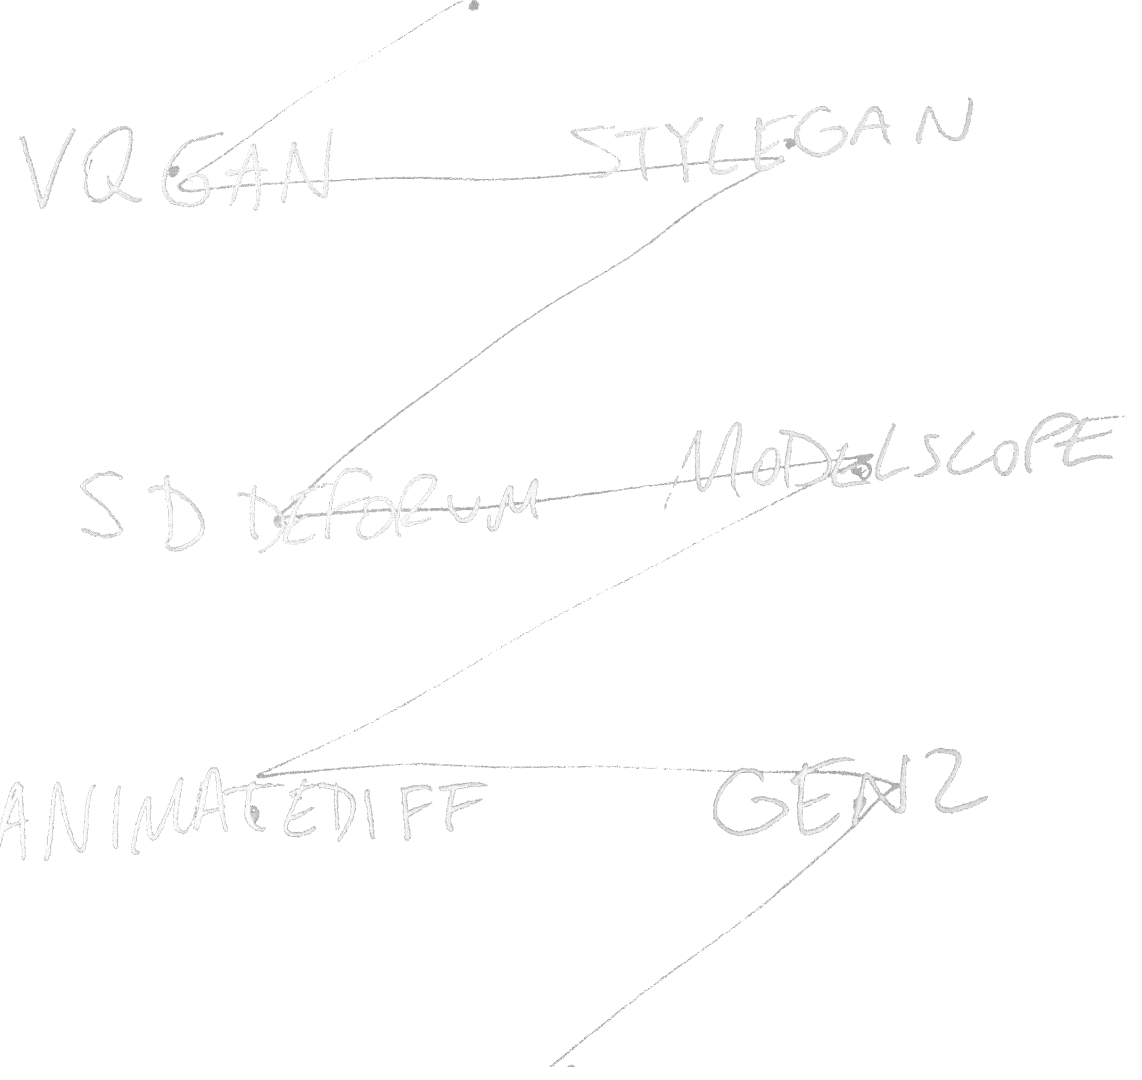 VQGAN STYLEGAN
SD DEFORUM MODELSCOPE
ANIMATEDIFF GEN2